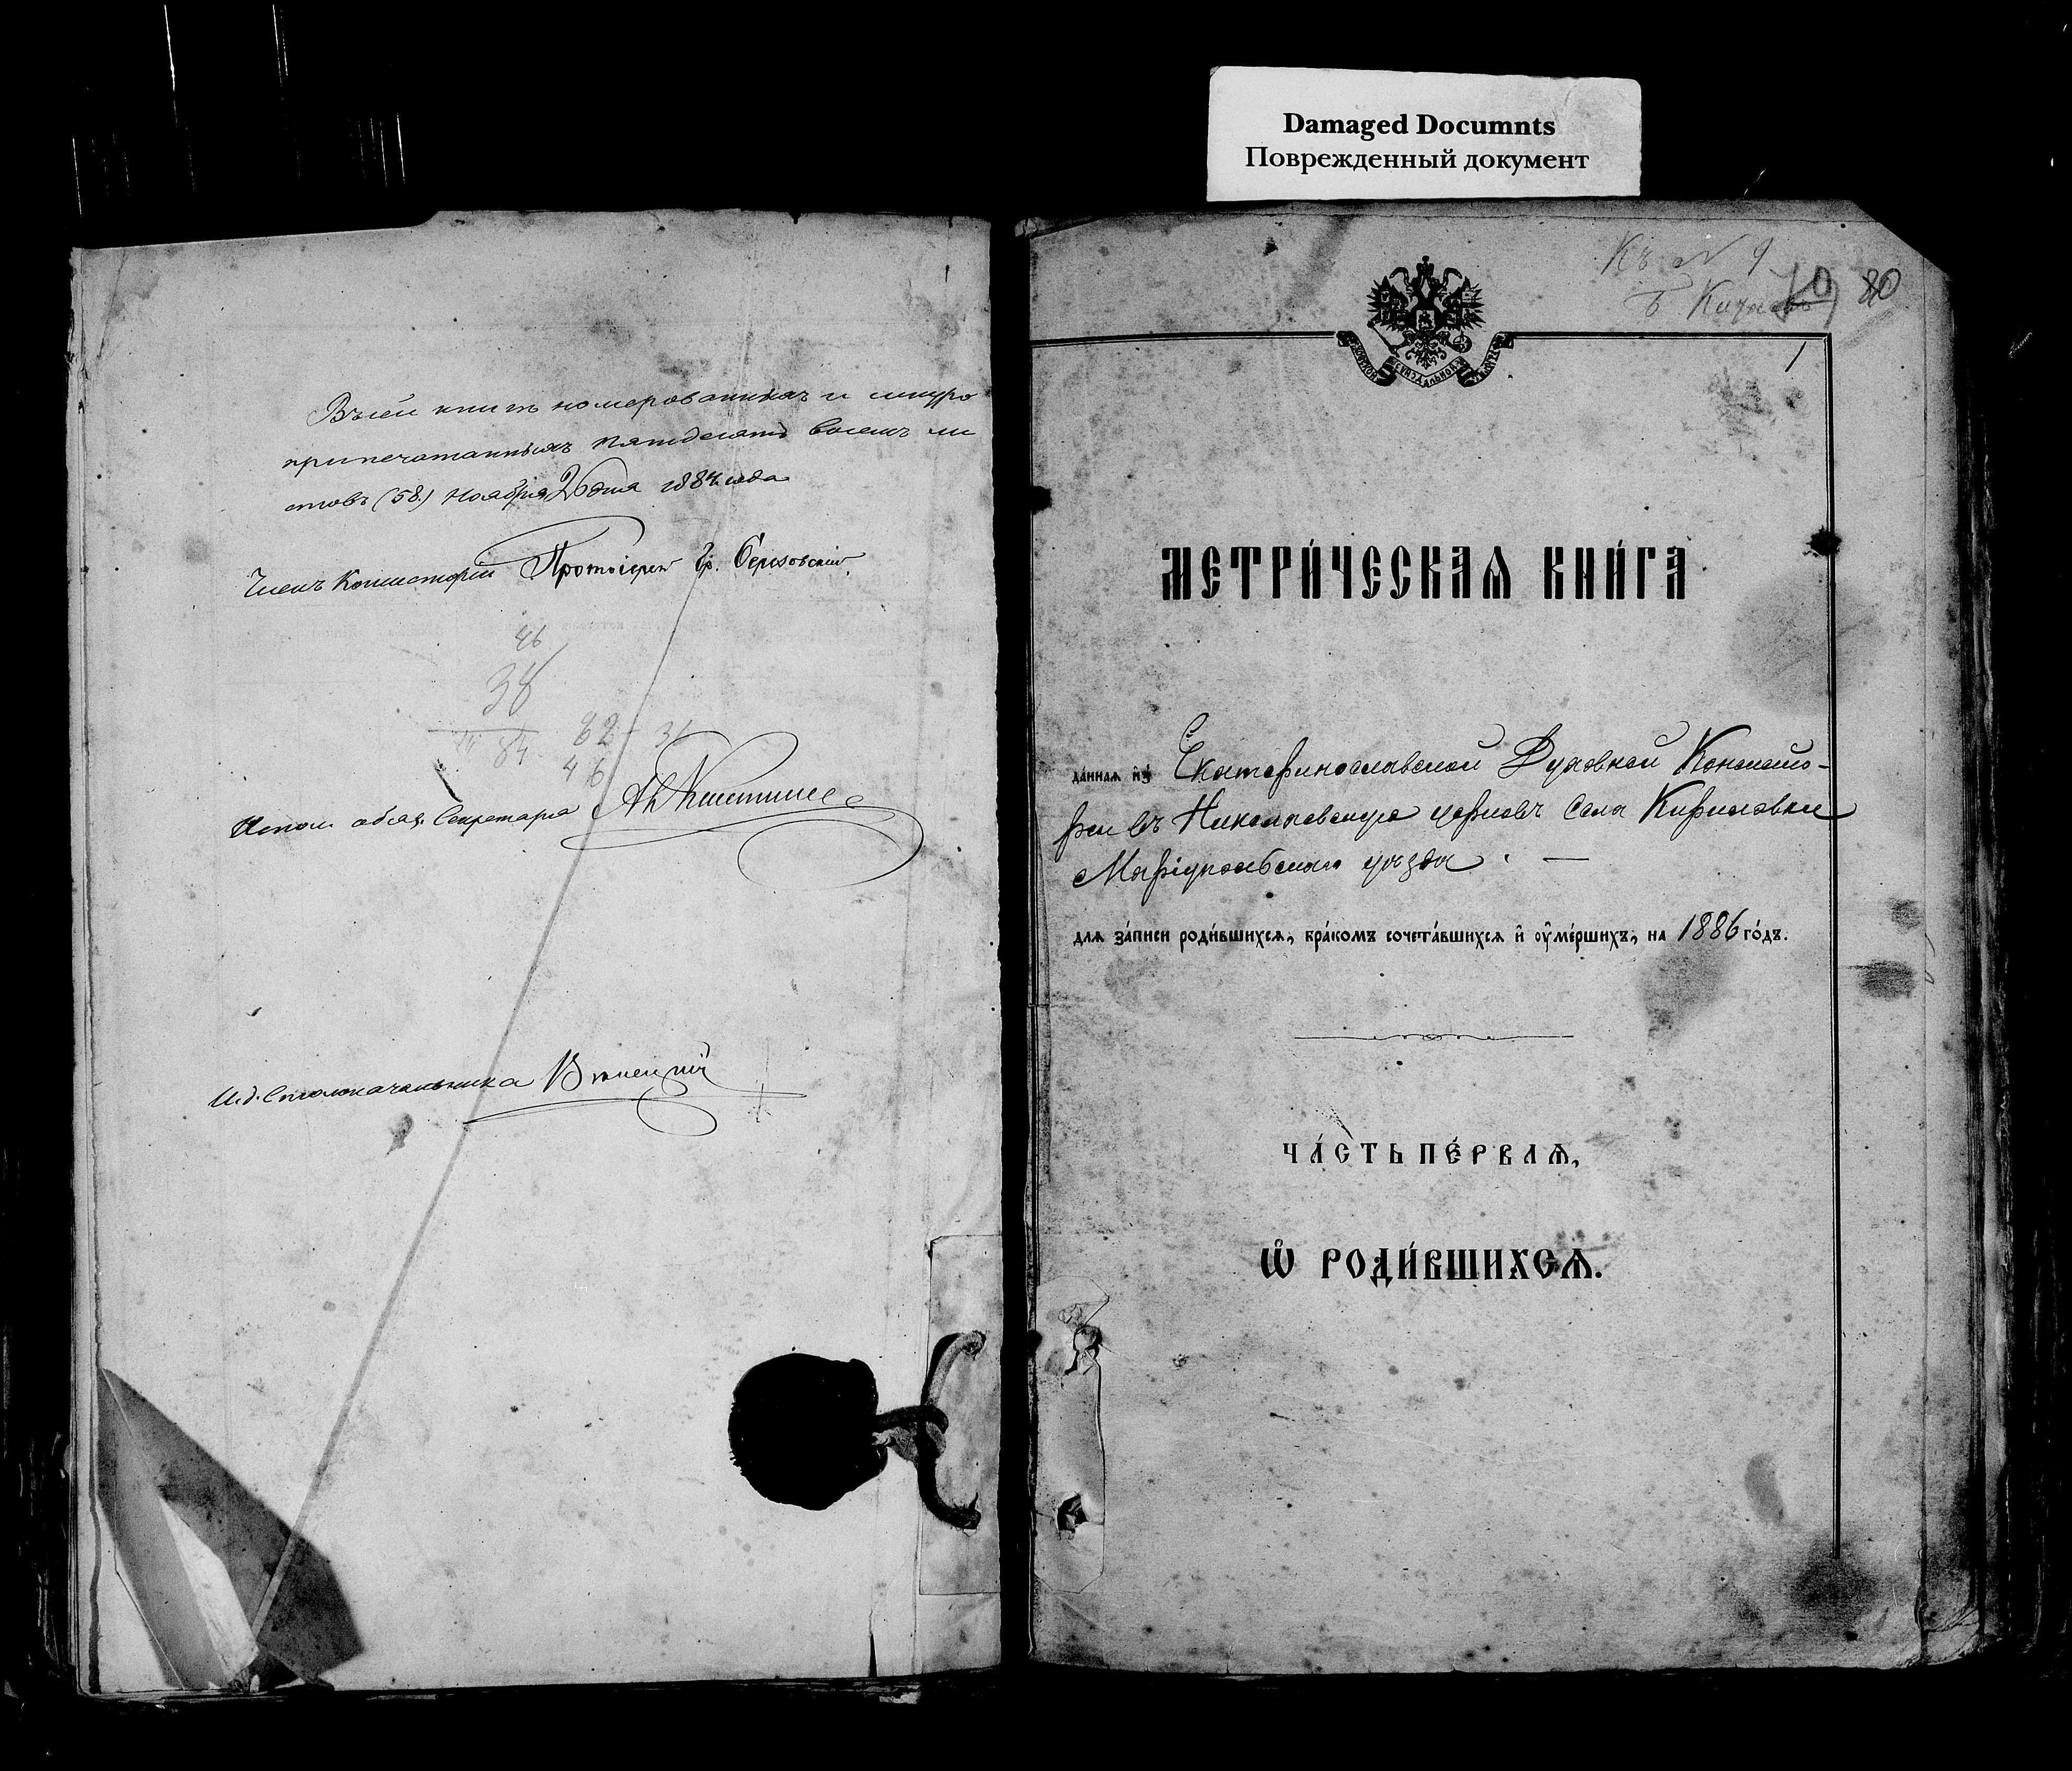 Damaged Documnts
Поврежденный документ
Въ сей книгѣ номерованныхъ и шнуро
припечатанныхъ пятдесятъ восемъ ли
стовъ (58) Ноября 26 дня 1884 года
Членъ Консисторіи Протоіерей Гр. Березовскій
46
38
84
82 - 31
46
Испол. обяз. Секретаря
И. д. Столоначальника
Къ № 9
80
1
МЕТРИ́ЧЕСКАѦ КНИ́ГА
да́нная и҆зъ Екатеринославской Духовной Консисто-
ріи въ Николаевскую церковь села Кириловки
Маріупольскаго уѣзда. —
для за́писи роди́вшихся, бра́комъ сочета́вшихся и҆ ᲂу҆ме́ршихъ, на 1886 го́дъ.
ЧА́СТЬ ПЕ́РВАѦ,
Ѡ҆ РОДИ́ВШИХСѦ.